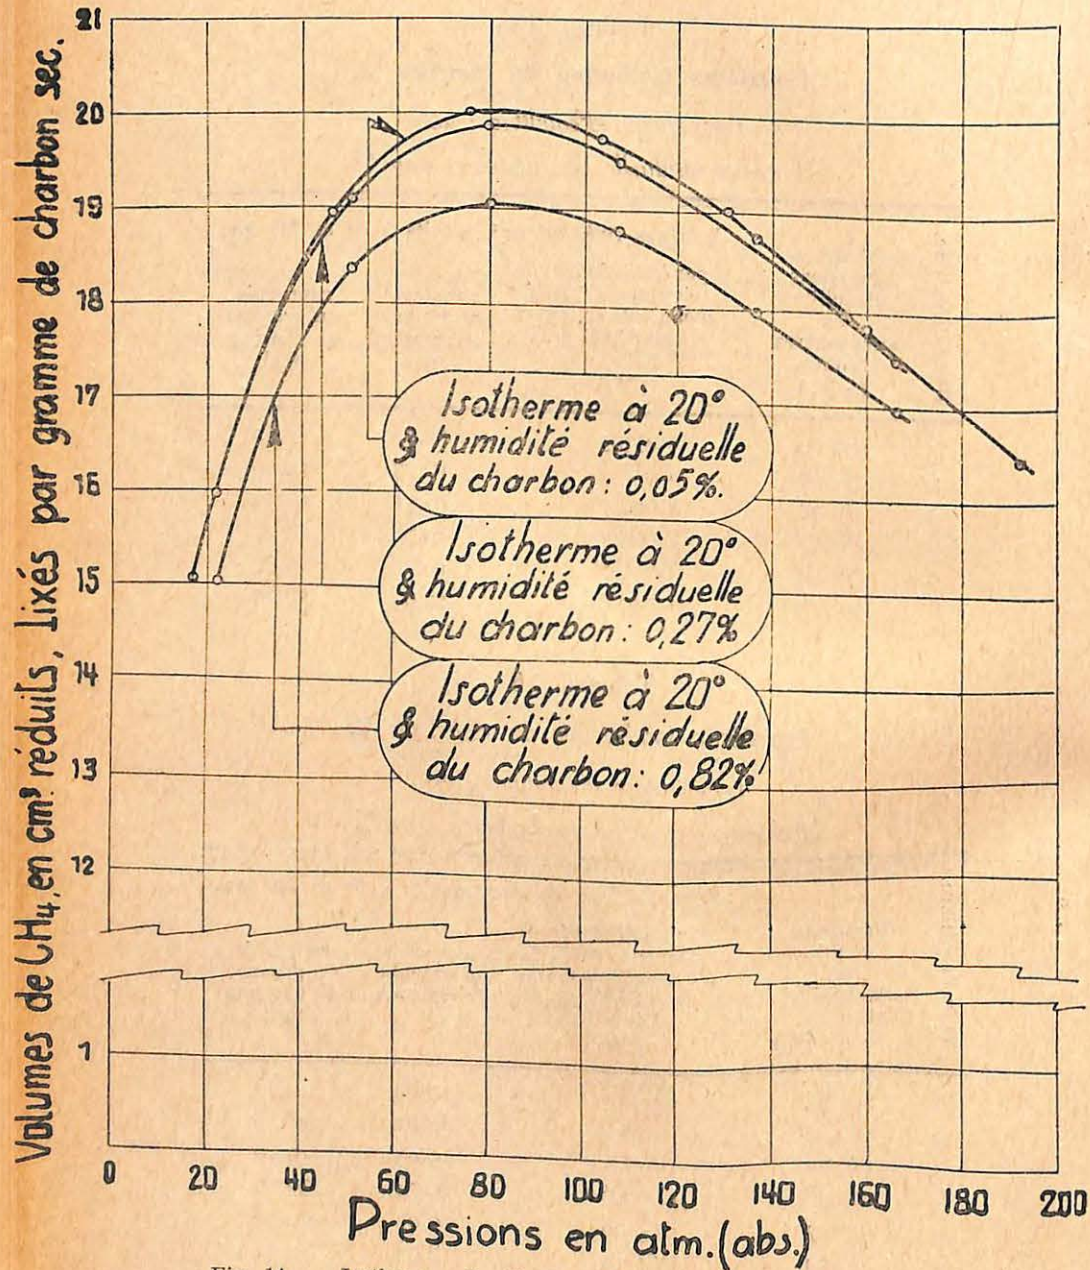 Volumes de CH4, en cm³ réduits, fixés par gramme de charbon sec.
21
20
19
18
17
16
15
14
13
12
1
Isotherme à 20°
& humidité résiduelle
du charbon : 0,05%.
Isotherme à 20°
& humidité résiduelle
du charbon : 0,27%
Isotherme à 20°
& humidité résiduelle
du charbon : 0,82%
0 20 40 60 80 100 120 140 160 180 200
Pressions en atm. (abs.)